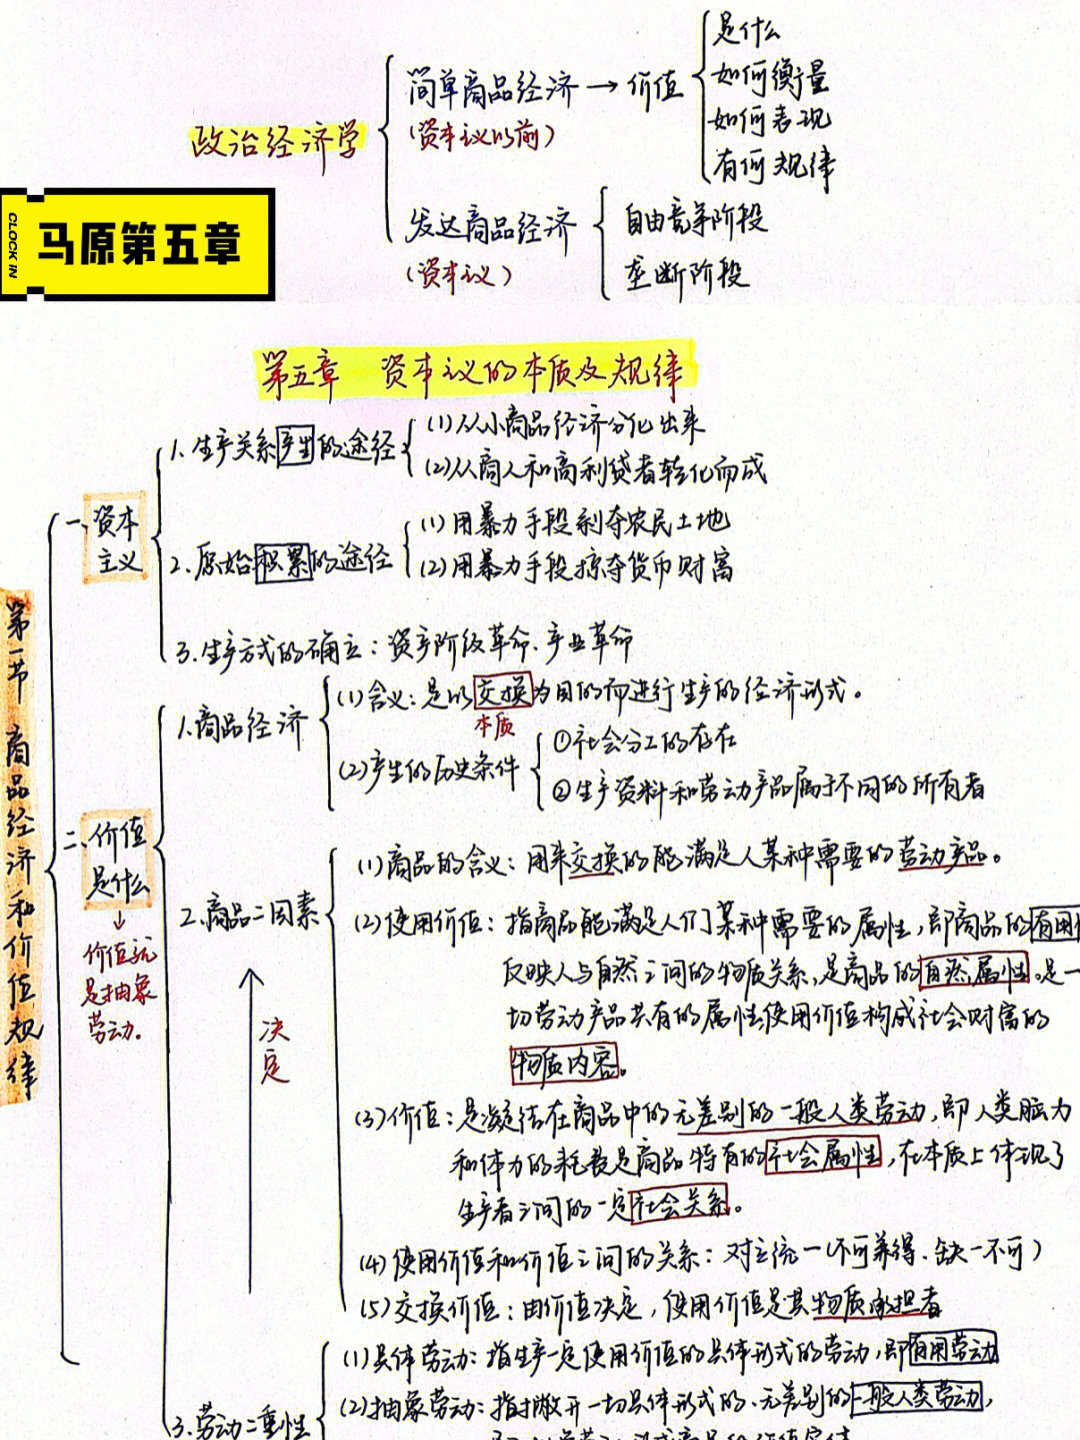 政治经济学
简单商品经济→价值
(资本主义以前)
是什么
如何衡量
如何表现
有何规律
发达商品经济
(资本主义)
自由竞争阶段
垄断阶段
CLOCK IN
马原第五章
第五章 资本主义的本质及规律
第一节 商品经济和价值规律
一、资本
主义
1.生产关系产生的途径
(1)从小商品经济分化出来
(2)从商人和高利贷者转化而成
2.原始积累的途径
(1)用暴力手段剥夺农民土地
(2)用暴力手段掠夺货币财富
3.生产方式的确立:资产阶级革命、产业革命
二、价值
是什么
↓
价值就
是抽象
劳动.
1.商品经济
(1)含义:是以交换为目的而进行生产的经济形式。
本质
(2)产生的历史条件
①社会分工的存在
②生产资料和劳动产品属于不同的所有者
2.商品二因素
决定
(1)商品的含义:用来交换的能满足人某种需要的劳动产品。
(2)使用价值:指商品能满足人们某种需要的属性,即商品的有用
反映人与自然之间的物质关系,是商品的自然属性。是一
切劳动产品共有的属性,使用价值构成社会财富的
物质内容。
(3)价值:是凝结在商品中的无差别的一般人类劳动,即人类脑力
和体力的耗费是商品特有的社会属性,在本质上体现了
生产者之间的一定社会关系。
(4)使用价值和价值之间的关系:对立统一(不可兼得、缺一不可)
(5)交换价值:由价值决定,使用价值是其物质承担者
3.劳动二重性
(1)具体劳动:指生产一定使用价值的具体形式的劳动,即有用劳动
(2)抽象劳动:指撇开一切具体形式的、无差别的一般人类劳动,